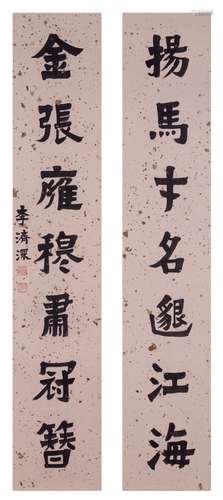 揚馬才名邈江海
金張雍穆肅冠簪
李濟深